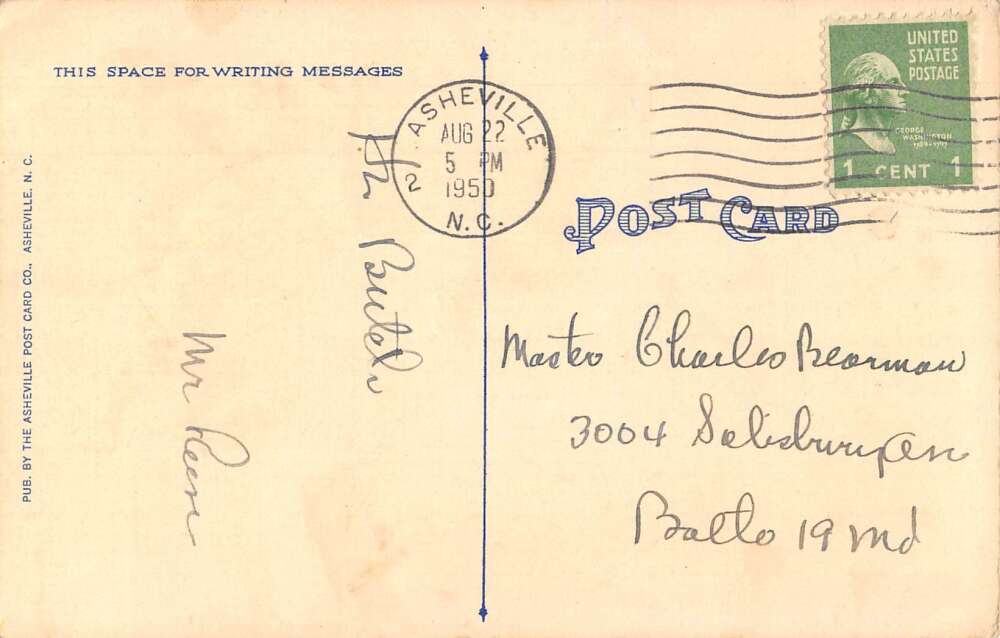 THIS SPACE FOR WRITING MESSAGES
PUB. BY THE ASHEVILLE POST CARD CO., ASHEVILLE, N. C.
ASHEVILLE
AUG 22
5 PM
1950
N.C.
2
UNITED
STATES
POSTAGE
GEORGE
WASHINGTON
1 CENT 1
POST CARD
Hi Butch
Mr
Master Charles Bearman
3004 Salisbury Av
Balto 19 Md